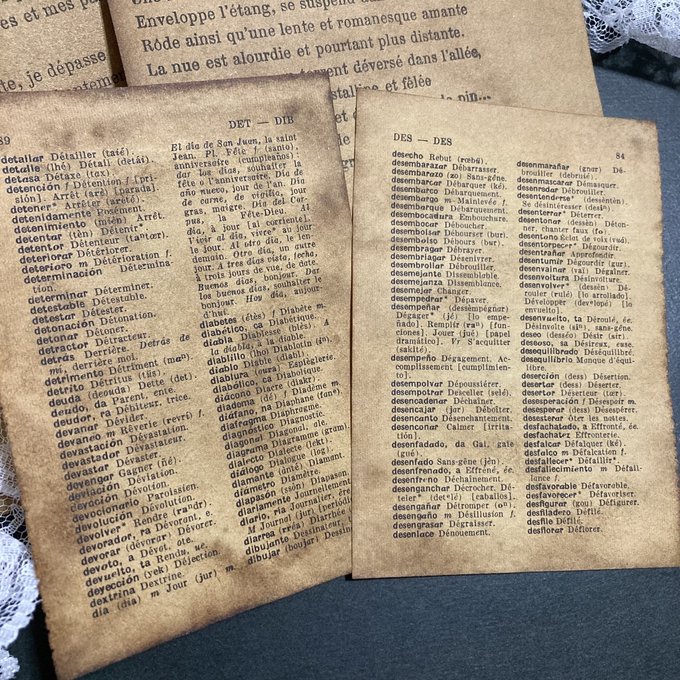 s et mes pa
te, je dépasse
Enveloppe l'étang, se suspend da
Rôde ainsi qu'une lente et romanesque amante
La nue est alourdie et pourtant plus distante.
déversé dans l'allée,
et fêlée
pin...
89
DET — DIB
detallar Détailler (taié).
detalle (lhé) Détail (detái).
detasa Détaxe (tax)
detención f Détention f [pri
sión]. Arrêt (aré) [parada]
detener* Arrêter (arété).
detenidamente Posément.
detenimiento (ién) Arrêt.
detentar (tèn) Détenir*
detentor Détenteur
deteriorar Détériorer.
deterioro m Détérioration f.
determinación Détermina-
tion.
determinar Déterminer.
detestable Détestable.
detestar Détester.
detonación Détonation.
detonar Détoner.
detractor Détracteur.
detrás Derrière. Detrás de
mí, derrière moi.
detrimento Détriment
detrito Détritus
deuda (deouda) Dette (det).
deudo, da Parent, ente.
deudor, ra Débiteur, trice.
devanar Dévider.
devaneo m Rêverie (revri) f.
devastación Dévastation.
devastador Dévastateur.
devastar Dévaster.
devengar Gagner (ñé).
desviación Déviation.
devoción Dévotion.
devocionario Paroissien.
devolución Dévolution.
devolver* Rendre
devorador, ra Dévorant, e.
devorar (dévorar) Dévorer.
devoto, a Dévot, ote.
devuelto, ta Rendu, ue.
deyección (yek) Déjection.
dextrina Dextrine.
día (día) m Jour (jur) m
El día de San Juan, la saint
Jean. Pl. Fête f (santo);
anniversaire (cumpleaños);
dar los días, souhaiter la
fête o l'anniversaire. Día de
año nuevo, jour de l'an. Día
de carne, de vigilia, jour
gras, maigre; Día del Cor-
pus, la Fête-Dieu. Al
día, à jour [al corriente].
Vivir al día, vivre* au jour
le jour. Al otro día, le len
demain. Otro día, un autre
jour. A tres días vista, fecha,
à trois jours de vue, de date.
Buenos días, bonjour. Dar
los buenos días, souhaiter le
bonjour. Hoy día, aujour-
d'hui.
diabetes (étès) f Diabète m
diabético, ca Diabétique
diabla Diablesse (blès) A
la diabla, à la diable.
diablillo (lho) Diablotin (in)
diablo Diable (diabl).
diablura (oura) Espièglerie.
diabólico, ca Diabolique
diácono Diacre (diakr)
diadema (dé) f Diadème m
diáfano, na Diaphane (fane)
diafragma Diaphragme.
diagnóstico Diagnostic.
diagonal Diagonal, ale.
diagrama Diagramme (gram).
dialecto Dialecte (lekt).
diálogo Dialogue (log).
diamante (ànté) Diamant.
diámetro Diamètre.
diapasón (són) Diapason.
diariamente Journellement
diario, ria Journalier, ère
M Journal (jur) (periódi
diarrea (rréa) Diarrhée
dibujante Dessinateur,
dibujar (boujar) Dessi
DES — DES
84
desecho Rebut (rœbú).
desembarazar Débarrasser.
desembarazo (zo) Sans-gêne.
desembarcar Débarquer (ké).
desembarco Débarquement.
desembargo m Mainlevée f.
desembarque Débarquement.
desembocadura Embouchure.
desembocar Déboucher.
desembolsar Débourser (bur).
desembolso Débours (bur).
desembragar Débrayer.
desembriagar Désenivrer.
desembrollar Débrouiller.
desemejante Dissemblable.
desemejanza Dissemblance.
desemejar Changer.
desempedrar* Dépaver.
desempeñar (dessèmpégnar)
Dégager* (jé) [lo em-
peñado]. Remplir (ran) [fun-
ciones]. Jouer (jué) [papel
dramático]. Vr S'acquitter
(sakité).
desempeño Dégagement. Ac-
complissement [cumplimien-
to].
desempolvar Dépoussiérer.
desempotrar Desceller (selé).
desencadenar Déchaîner.
desencajar (jar) Déboîter.
desencanto Désenchantement.
desenconar Calmer [irrita-
tión].
desenfadado, da Gai, gaie
(gué).
desenfado Sans-gêne (jèn).
desenfrenado, a Effréné, ée.
desenfreno Déchaînement.
desenganchar Décrocher. Dé-
teler* (det*lé) [caballos].
desengañar Détromper
desengaño m Désillusion f.
desengrasar Dégraisser.
desenlace Dénouement.
desenmarañar (gnar) Dé-
brouiller (debruié).
desenmascarar Démasquer.
desenredar Débrouiller.
desentenderse* (dessèntèn).
Se désintéresser
desenterrar* Déterrer.
desentonar (dessèn) Déton-
ner, chanter faux (fo).
desentono Éclat de voix (vuá).
desentorpecer* Dégourdir.
desentrañar Approfondir.
desentumir Dégourdir (gur).
desenvainar (vai) Dégaîner.
desenvoltura Désinvolture.
desenvolver* (dessèn) Dé-
rouler (rulé) [lo arrollado].
Développer (dev*lopé) [lo
envuelto].
desenvuelto, ta Déroulé, ée.
Désinvolte (sin), sans-gêne.
deseo (desséo) Désir (sir).
deseoso, sa Désireux, euse.
desequilibrado Déséquilibré.
desequilibrio Manque d'équi-
libre.
deserción (dess) Désertion.
desertar (dess) Déserter.
desertor Déserteur (tœr).
desesperación f Désespoir m.
desesperar (dess) Désespérer.
desesterar Ôter les nattes.
desfachatado, a Effronté, ée.
desfachatez Effronterie.
desfalcar Défalquer (ké).
desfalco m Défalcation f.
desfallecer* Défaillir*
desfallecimiento m Défail-
lance f.
desfavorable Défavorable.
desfavorecer* Défavoriser.
desfigurar (gou) Défigurer.
desfiladero Défilé.
desfile Défilé.
desflorar Déflorer.